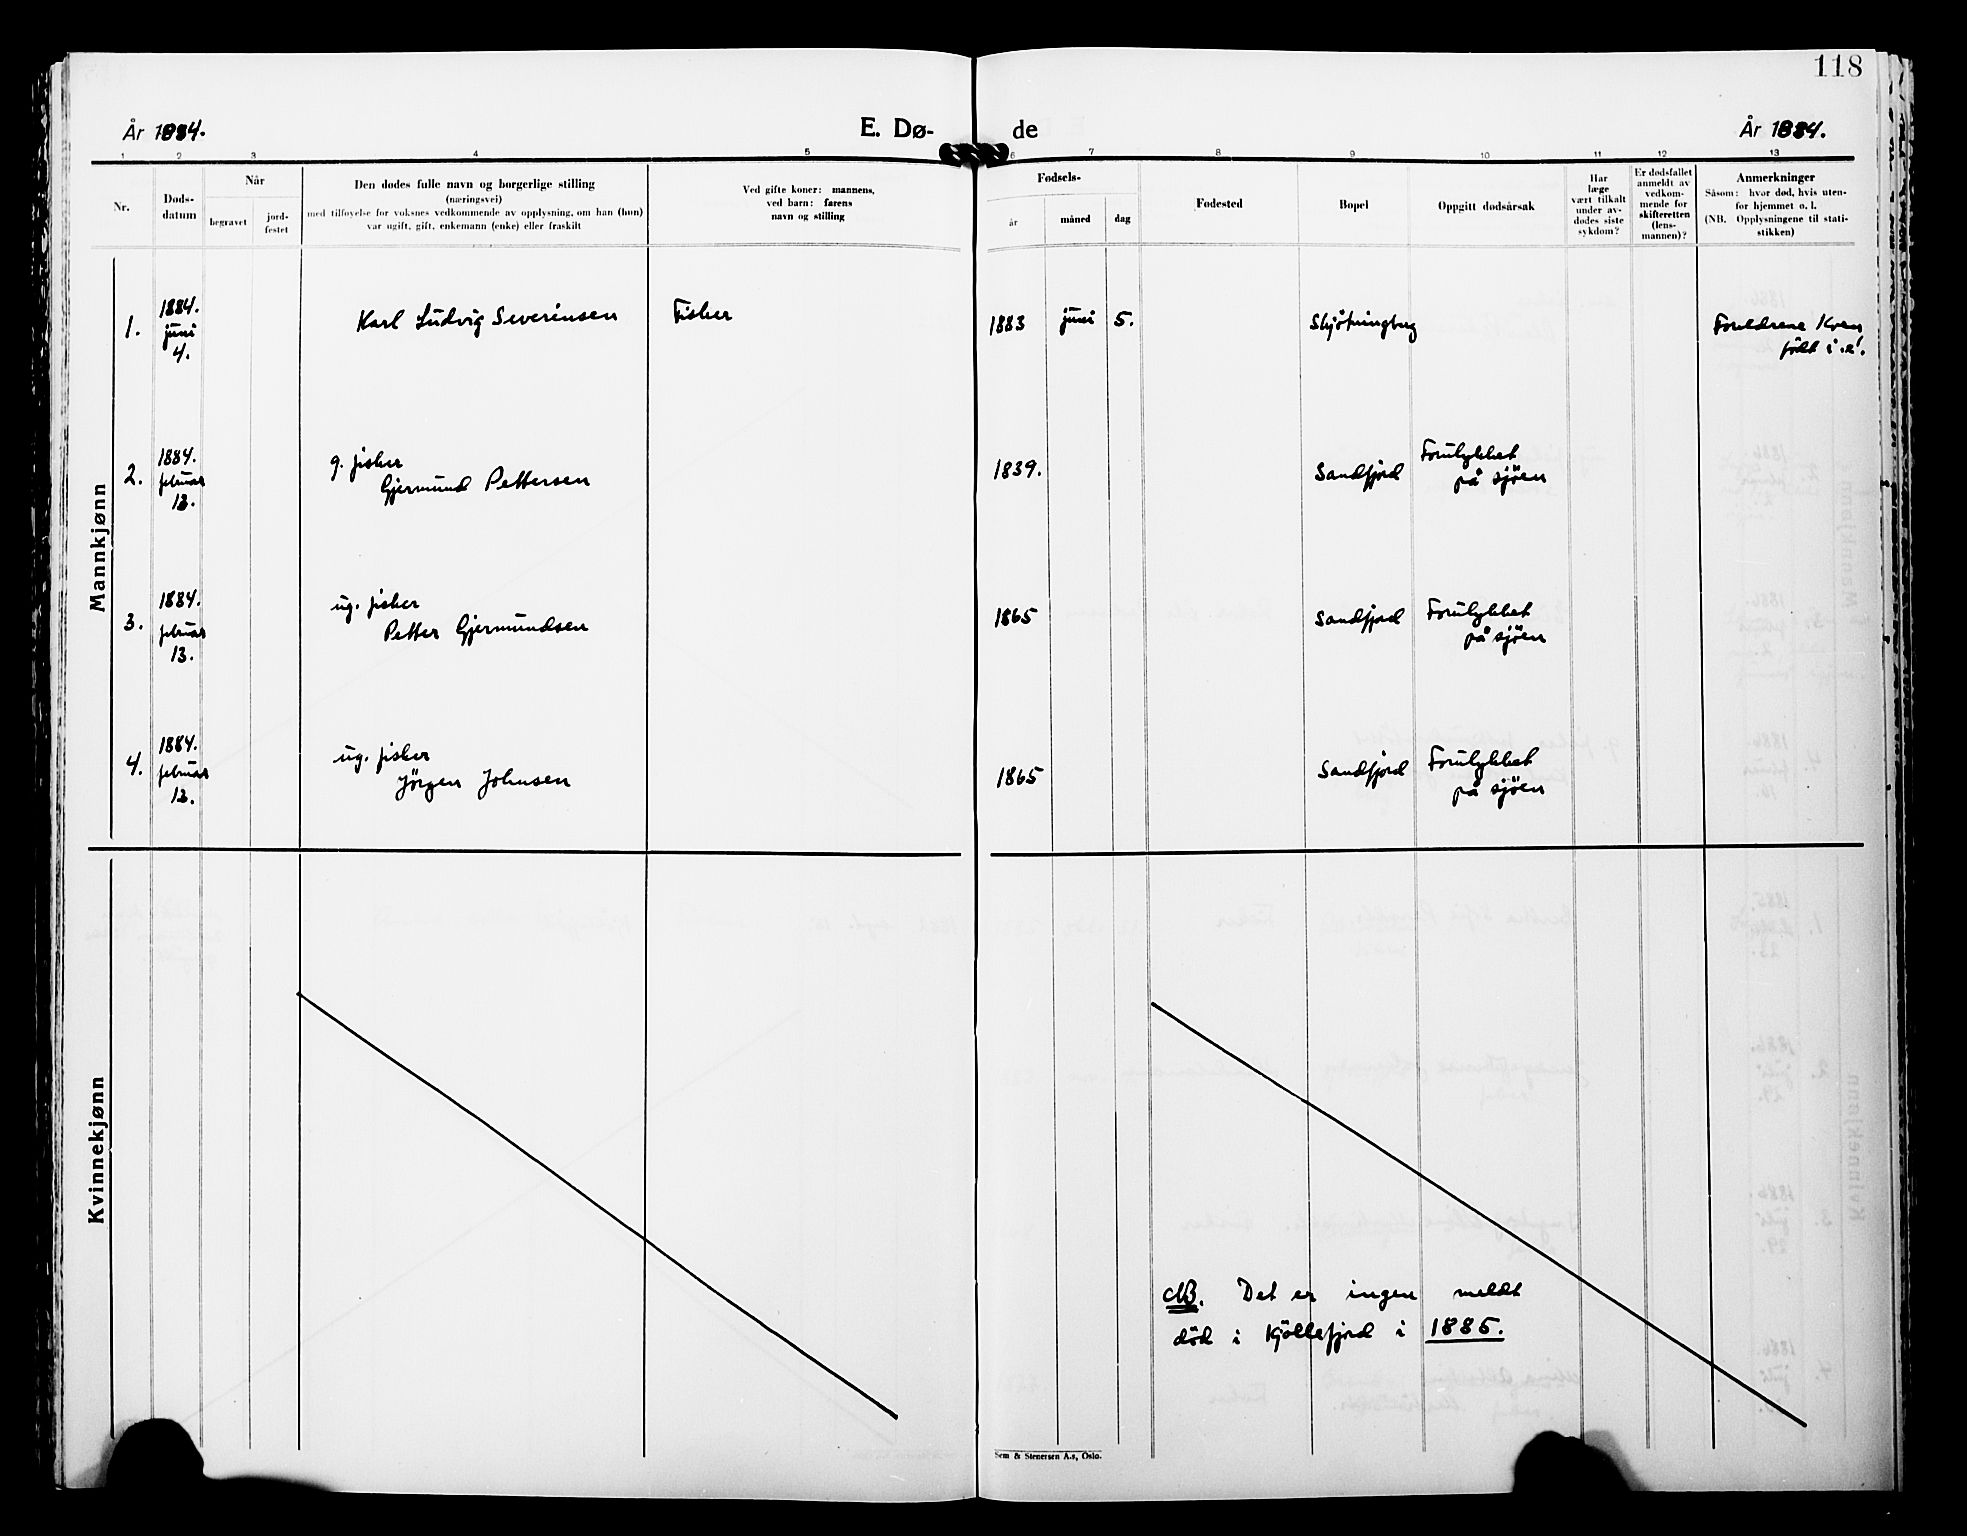 118
År 1884.
E. Dø-
de
År 1884.
1 2 3 4 5 6 7 8 9 10 11 12 13
Nr.
Døds-
datum
Når
begravet
jord-
festet
Den dødes fulle navn og borgerlige stilling
(næringsvei)
med tilføyelse for voksnes vedkommende av opplysning, om han (hun)
var ugift, gift, enkemann (enke) eller fraskilt
Ved gifte koner: mannens,
ved barn: farens
navn og stilling
Fødsels-
år
måned
dag
Fødested
Bopel
Oppgitt dødsårsak
Har
læge
vært tilkalt
under av-
dødes siste
sykdom?
Er dødsfallet
anmeldt av
vedkom-
mende for
skifteretten
(lens-
mannen)?
Anmerkninger
Såsom: hvor død, hvis uten-
for hjemmet o. l.
(NB. Opplysningene til stati-
stikken)
Mannkjønn
1.
1884.
juni
4.
Karl Ludvig Severinsen
Fisker
1883
juni
5.
Skjötningbug
Foreldrene Kven
födt i
2.
1884.
februar
13.
g. fisker
Gjermund Pettersen
1839.
Sandfjord
Forulykket
på sjöen
3.
1884.
februar
13.
ug. fisker
Petter Gjermundsen
1865
Sandfjord
Forulykket
på sjöen
4.
1884.
februar
13.
ug. fisker
Jörgen Johnsen
1865
Sandfjord
Forulykket
på sjöen
Kvinnekjønn
NB. Det er ingen meldt
död i Kjöllefjord i 1885.
Sem & Stenersen A.s, Oslo.